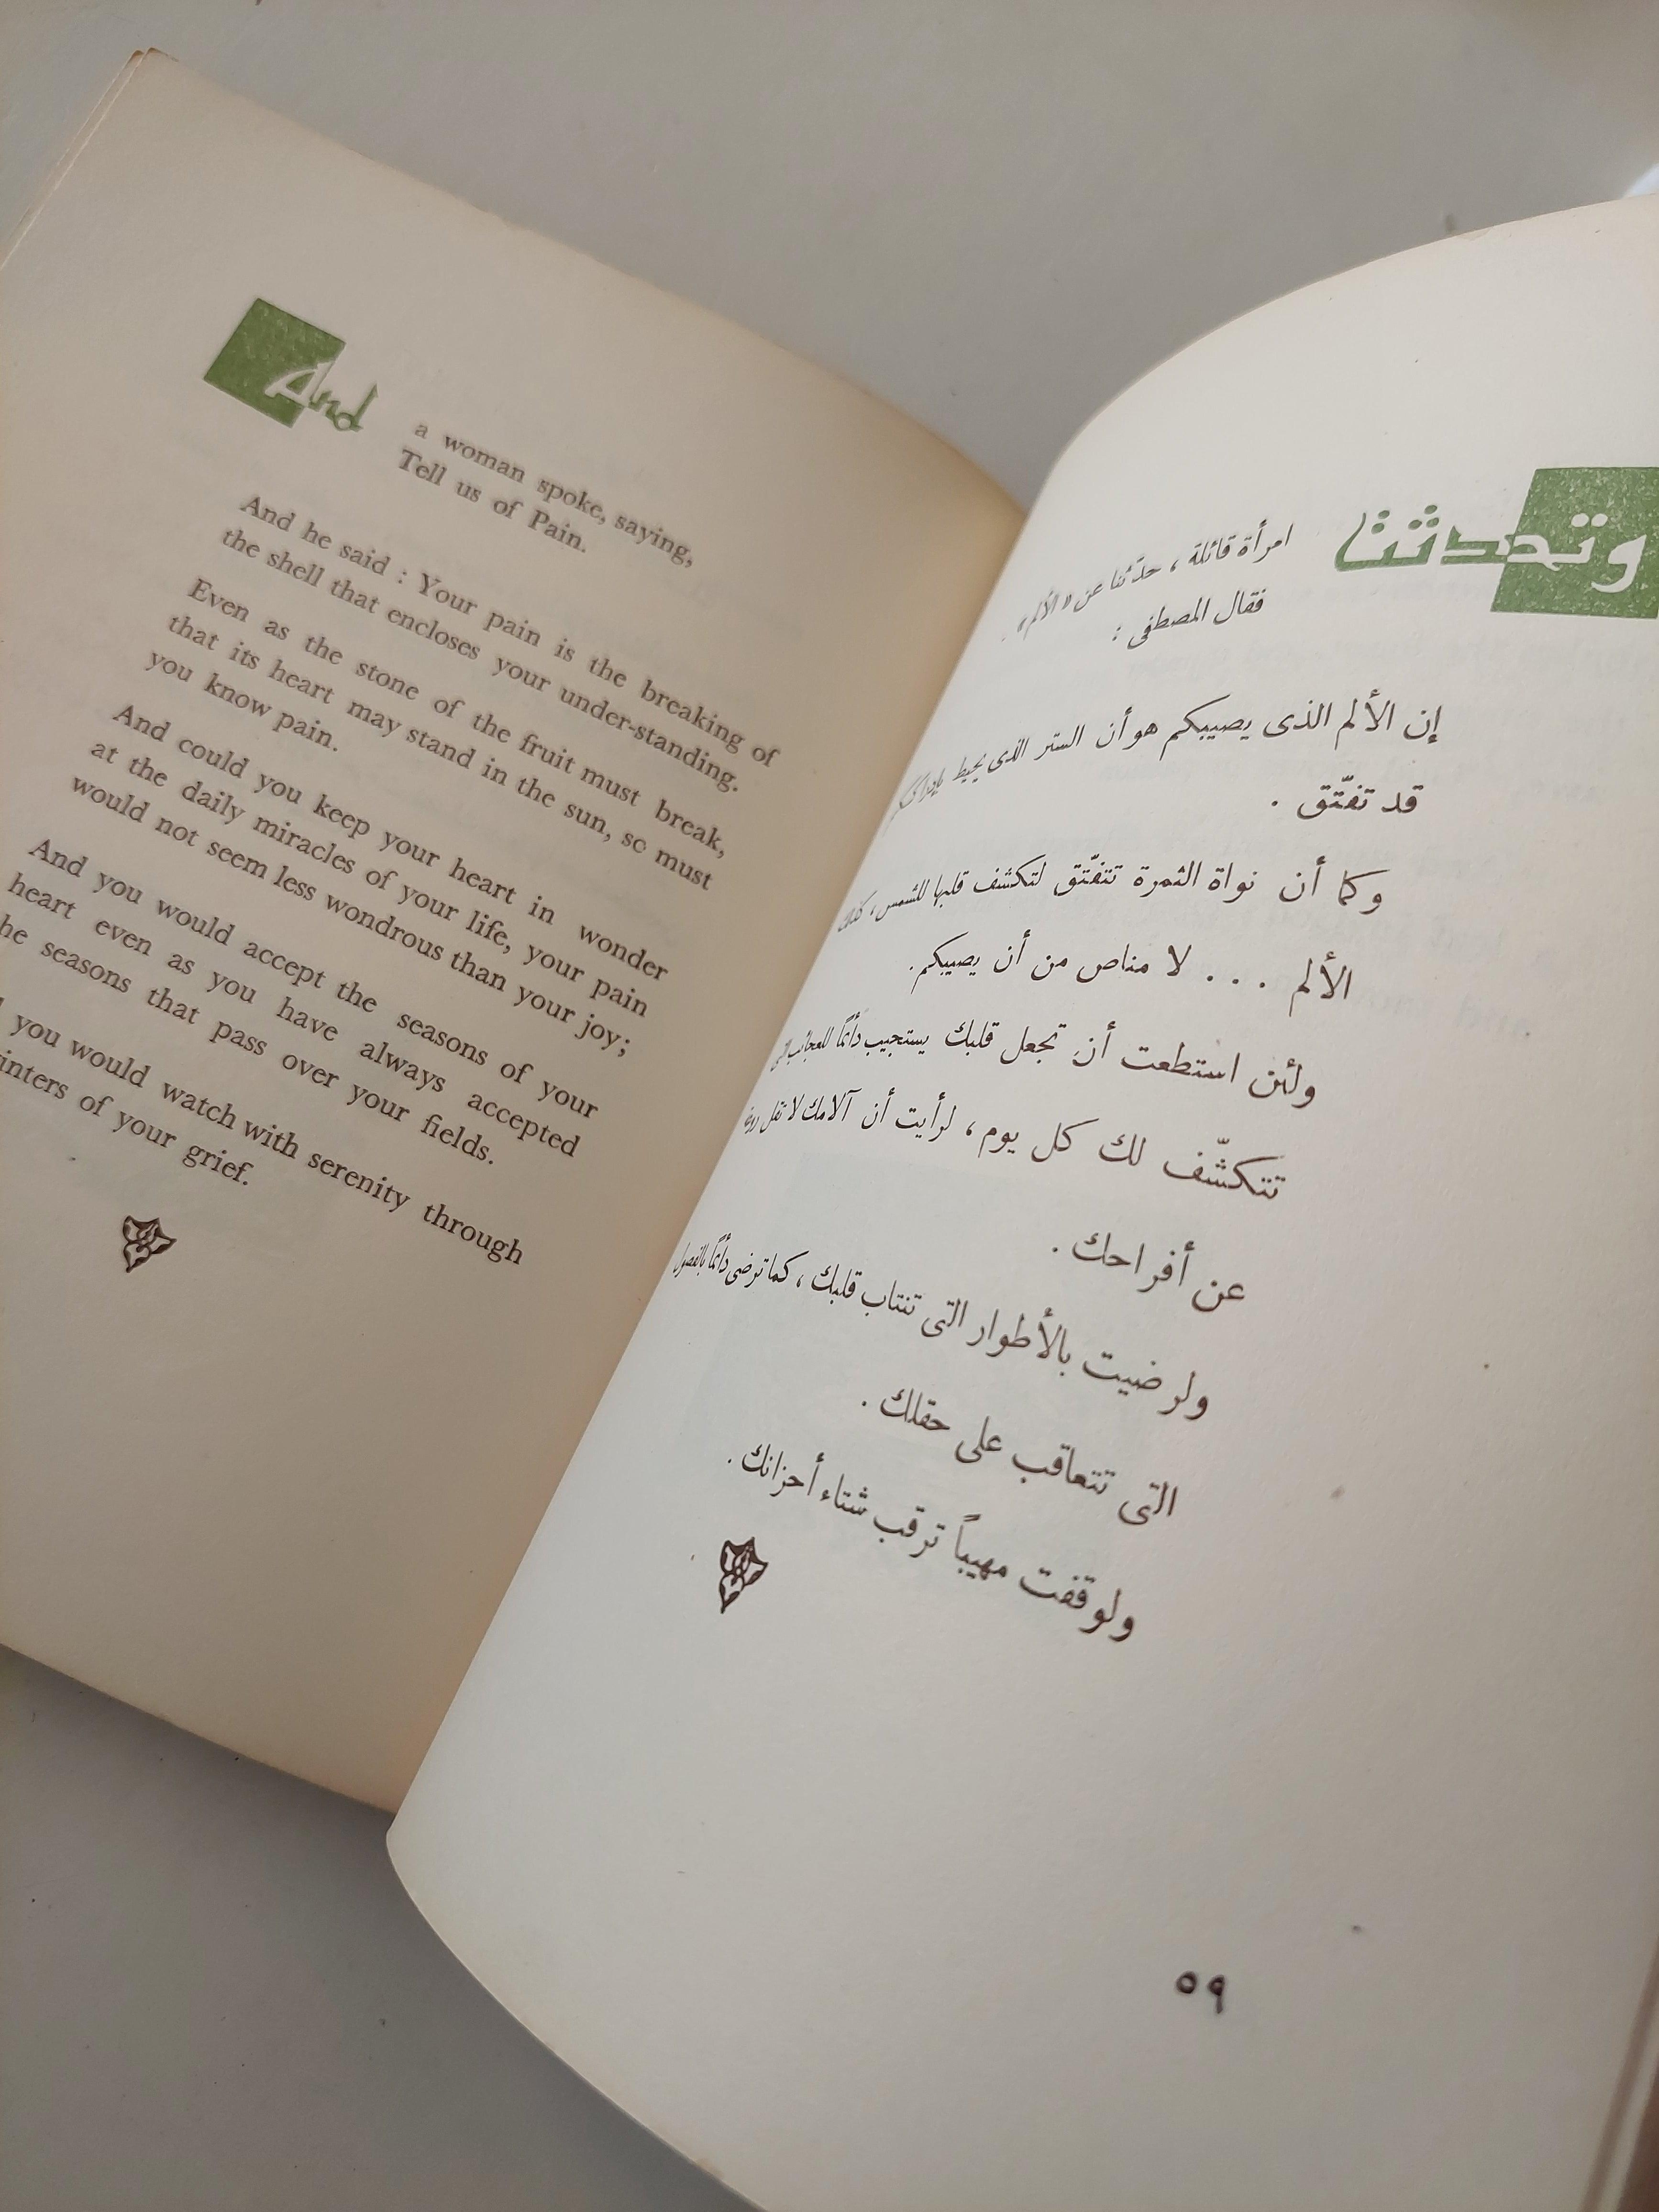 And a woman spoke, saying,
Tell us of Pain.
And he said : Your pain is the breaking of
the shell that encloses your under-standing.
Even as the stone of the fruit must break,
that its heart may stand in the sun, so must
you know pain.
And could you keep your heart in wonder
at the daily miracles of your life, your pain
would not seem less wondrous than your joy;
And you would accept the seasons of your
heart even as you have always accepted
he seasons that pass over your fields.
you would watch with serenity through
inters of your grief.
وتحدثت امرأة قائلة ، حدّثنا عن « الألم » .
فقال المصطفى :
إن الألم الذى يصيبكم هو أن الستر الذى يحيط بإدراككم
قد تفتّق .
وكما أن نواة الثمرة تتفتّق لتكشف قلبها للشمس ، كذلك
الألم . . . لا مناص من أن يصيبكم .
ولئن استطعت أن تجعل قلبك يستجيب دائمًا للعجائب التى
تتكشّف لك كل يوم ، لرأيت أن آلامك لا تقل روعة
عن أفراحك .
ولرضيت بالأطوار التى تنتاب قلبك ، كما ترضى دائمًا بالفصول
التى تتعاقب على حقلك .
ولوقفت مهيباً ترقب شتاء أحزانك .
٥٩